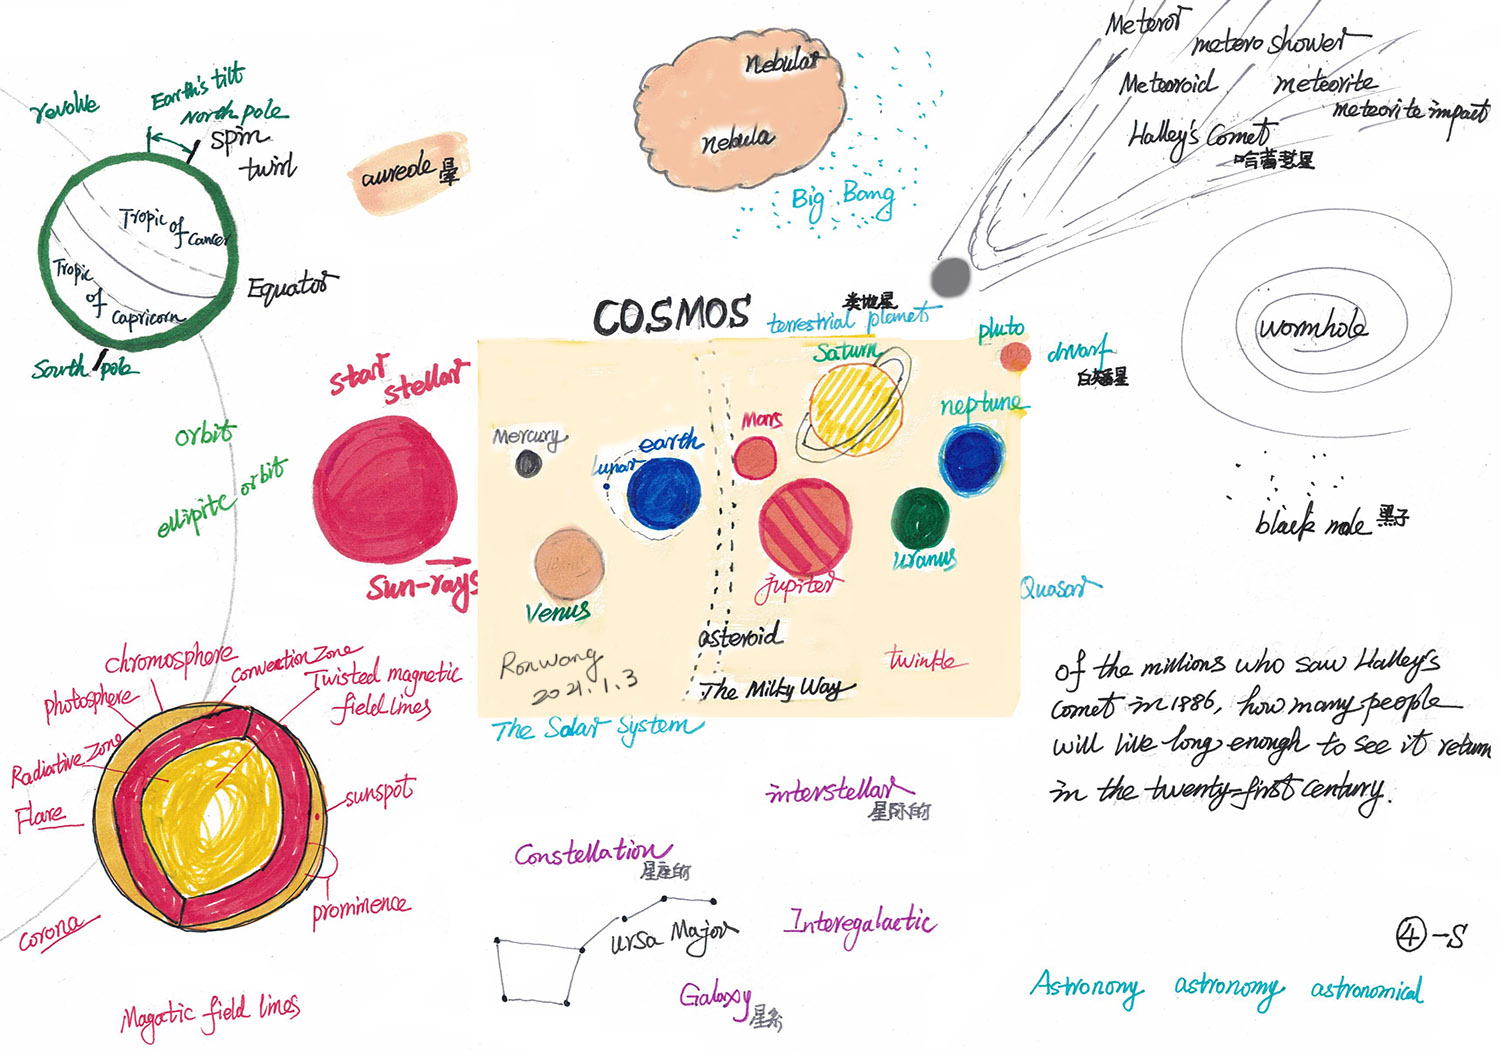 revolve
Earth's tilt
North pole
spin
twirl
Tropic
of
Cancer
Tropic
of
Capricorn
Equator
South pole
orbit
elliptic orbit
aureole 晕
nebular
nebula
Big Bang
Meteror
metero shower
Meteoroid
meteorite
meteorite impact
Halley's Comet
哈雷彗星
wormhole
black mole 黑子
COSMOS
类地星
terrestrial planet
Saturn
pluto
dwarf
白矮星
neptune
star
stellar
Sun-rays
Mercury
earth
Lunar
Venus
Mars
Jupiter
Uranus
Quasar
asteroid
twinkle
The Milky Way
Ronwang
2021.1.3
The Solar System
chromosphere
convection zone
photosphere
Twisted magnetic
field lines
Radiative zone
Flare
sunspot
prominence
corona
Magatic field lines
of the millions who saw Halley's
comet in 1886, how many people
will live long enough to see it return
in the twenty-first century.
interstellar
星际的
Constellation
星座的
ursa Major
Interegalactic
Galaxy
星系
④-S
Astronony astronomy astronomical